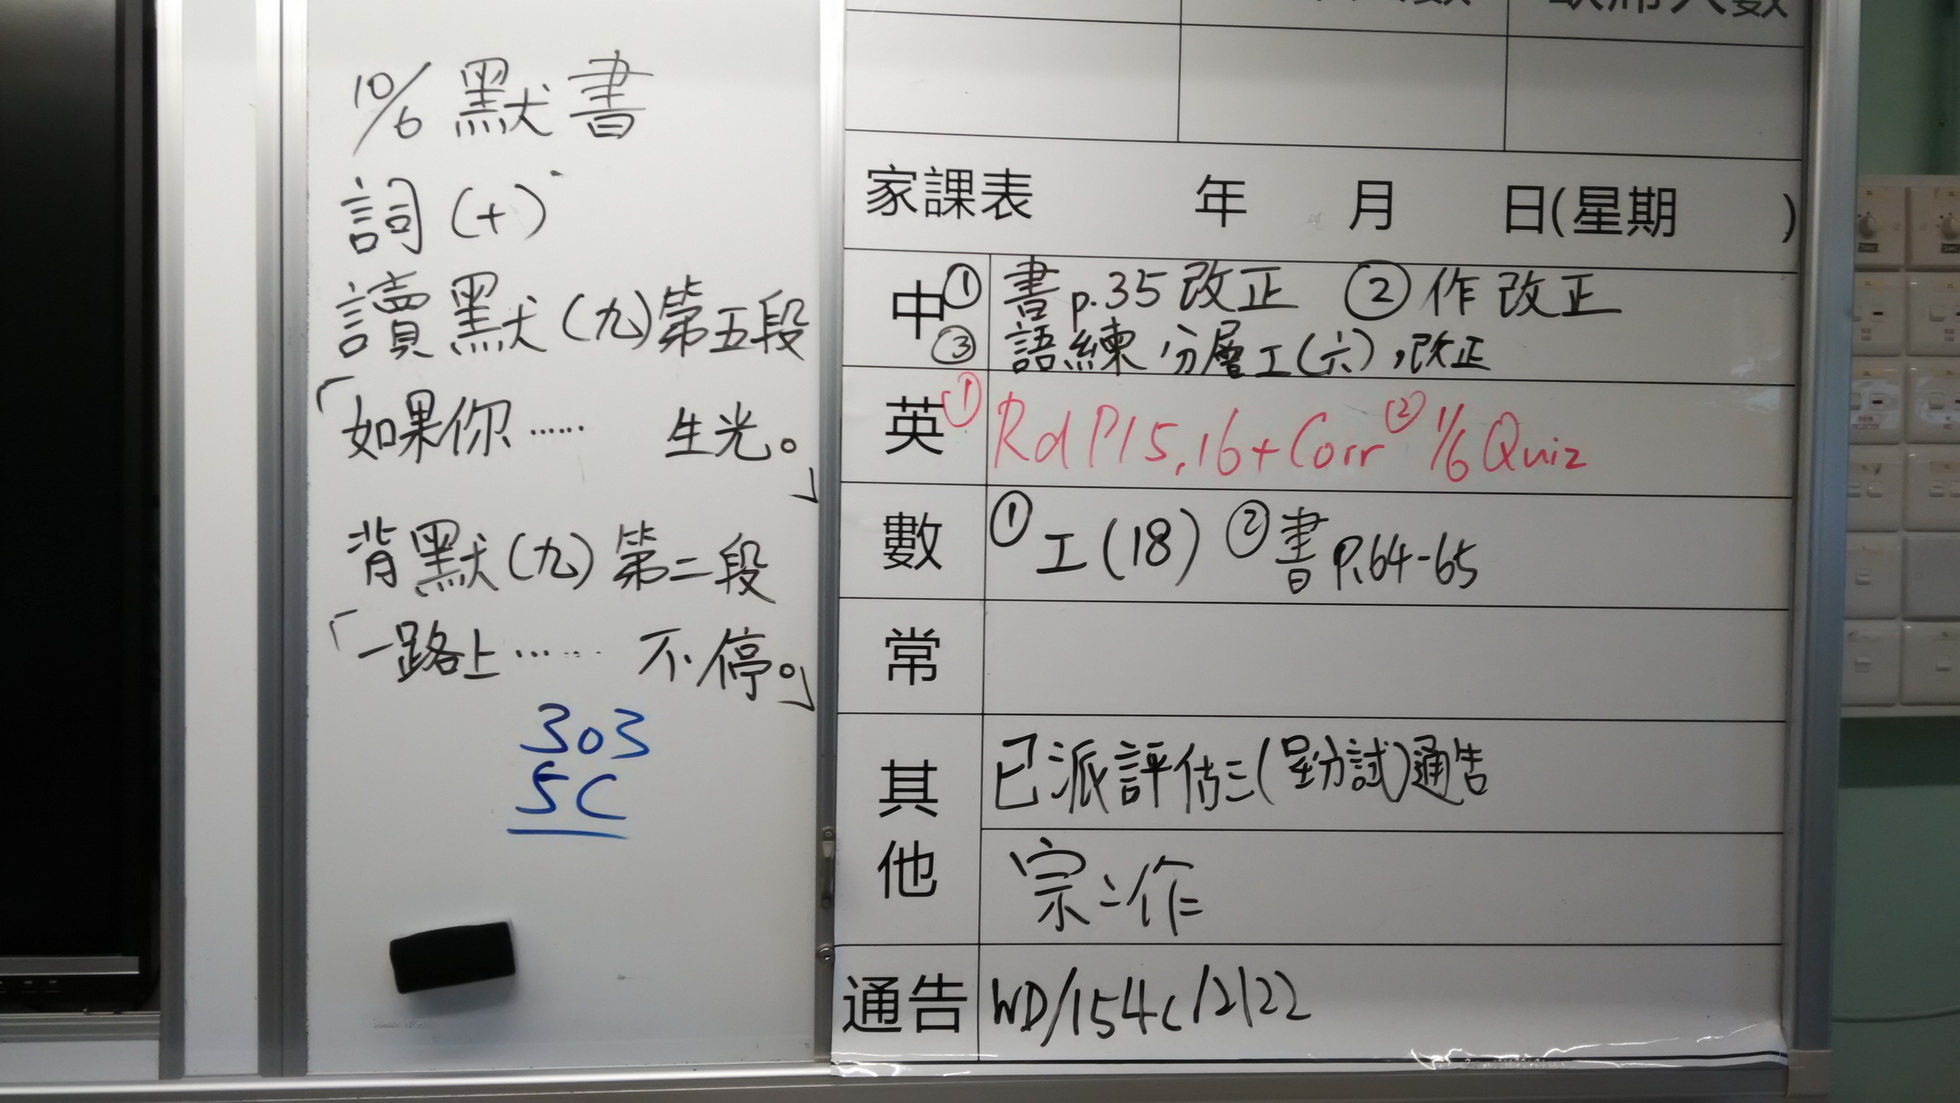 10/6 默書
詞(十)
讀默(九)第五段
「如果你…… 生光。」
背默(九)第二段
「一路上…… 不停。」
303
5C
家課表 年 月 日(星期 )
中 ① 書p.35改正 ② 作改正
③ 語練 分層工(六),改正
英 ① Rd P15,16+Corr ② 1/6 Quiz
數 ① 工(18) ② 書P.64-65
常
其他
已派評估三(呈分試)通告
宗:作
通告 WD/154c/2122